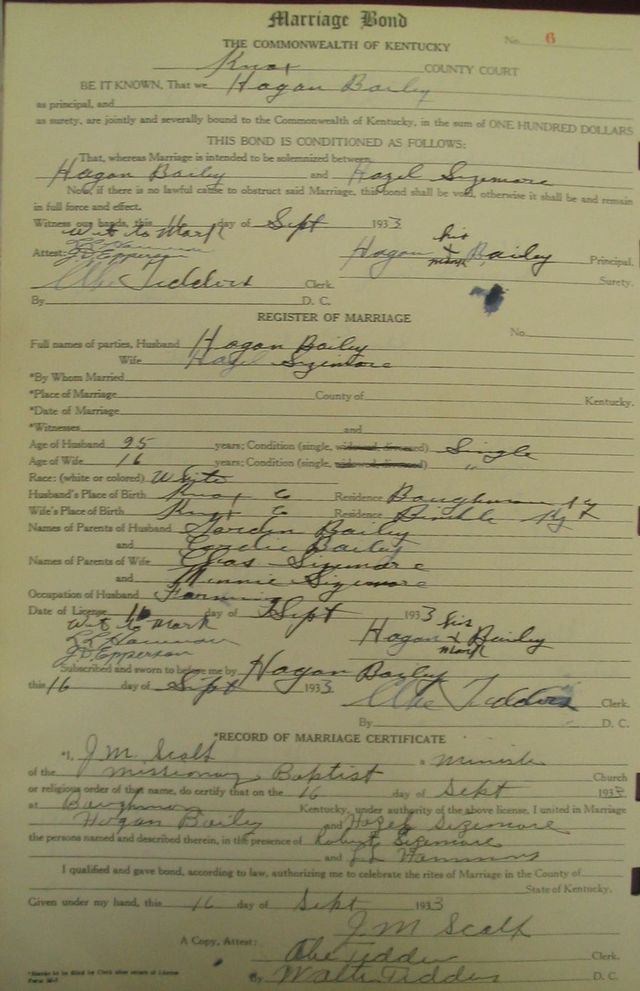 Marriage Bond
No. 6
THE COMMONWEALTH OF KENTUCKY
Knox COUNTY COURT
BE IT KNOWN, That we Hogan Baily
as principal, and
as surety, are jointly and severally bound to the Commonwealth of Kentucky, in the sum of ONE HUNDRED DOLLARS
THIS BOND IS CONDITIONED AS FOLLOWS:
That, whereas Marriage is intended to be solemnized between
Hogan Baily and Hazel Sizemore
Now, if there is no lawful cause to obstruct said Marriage, this bond shall be void, otherwise it shall be and remain
in full force and effect.
Witness our hands, this 16 day of Sept 1933
Wit to Mark
his
Attest: Hogan x Baily Principal.
J D Epperson mark
Surety.
Abe Tedders Clerk.
By D. C.
REGISTER OF MARRIAGE
No.
Full names of parties, Husband Hogan Baily
Wife Hazel Sizemore
*By Whom Married
*Place of Marriage County of Kentucky.
*Date of Marriage
*Witnesses and
Age of Husband 25 years; Condition (single, widowed, divorced) Single
Age of Wife 16 years; Condition (single, widowed, divorced) "
Race: (white or colored) White
Husband's Place of Birth Knox Co Residence Baughman Ky
Wife's Place of Birth Knox Co Residence Bimble Ky
Names of Parents of Husband Baily
and Baily
Names of Parents of Wife Chas Sizemore
and Minnie Sizemore
Occupation of Husband Farming
Date of License 16 day of Sept 1933
Wit to Mark
his
Hogan x Baily
J D Epperson mark
Subscribed and sworn to before me by Hogan Baily
this 16 day of Sept 1933
Abe Tedders Clerk.
By D. C.
*RECORD OF MARRIAGE CERTIFICATE
*I, J M Scalf a Minister
of the Missionary Baptist Church
or religious order of that name, do certify that on the 16 day of Sept 1933
at Baughman Kentucky, under authority of the above license, I united in Marriage
Hogan Baily and Hazel Sizemore
the persons named and described therein, in the presence of Robert Sizemore
and L L Hammons
I qualified and gave bond, according to law, authorizing me to celebrate the rites of Marriage in the County of
State of Kentucky.
Given under my hand, this 16 day of Sept 1933
J. M Scalf
A Copy, Attest: Abe Tedders Clerk.
By Walter Tedders D. C.
*Blanks to be filled by Clerk after return of License